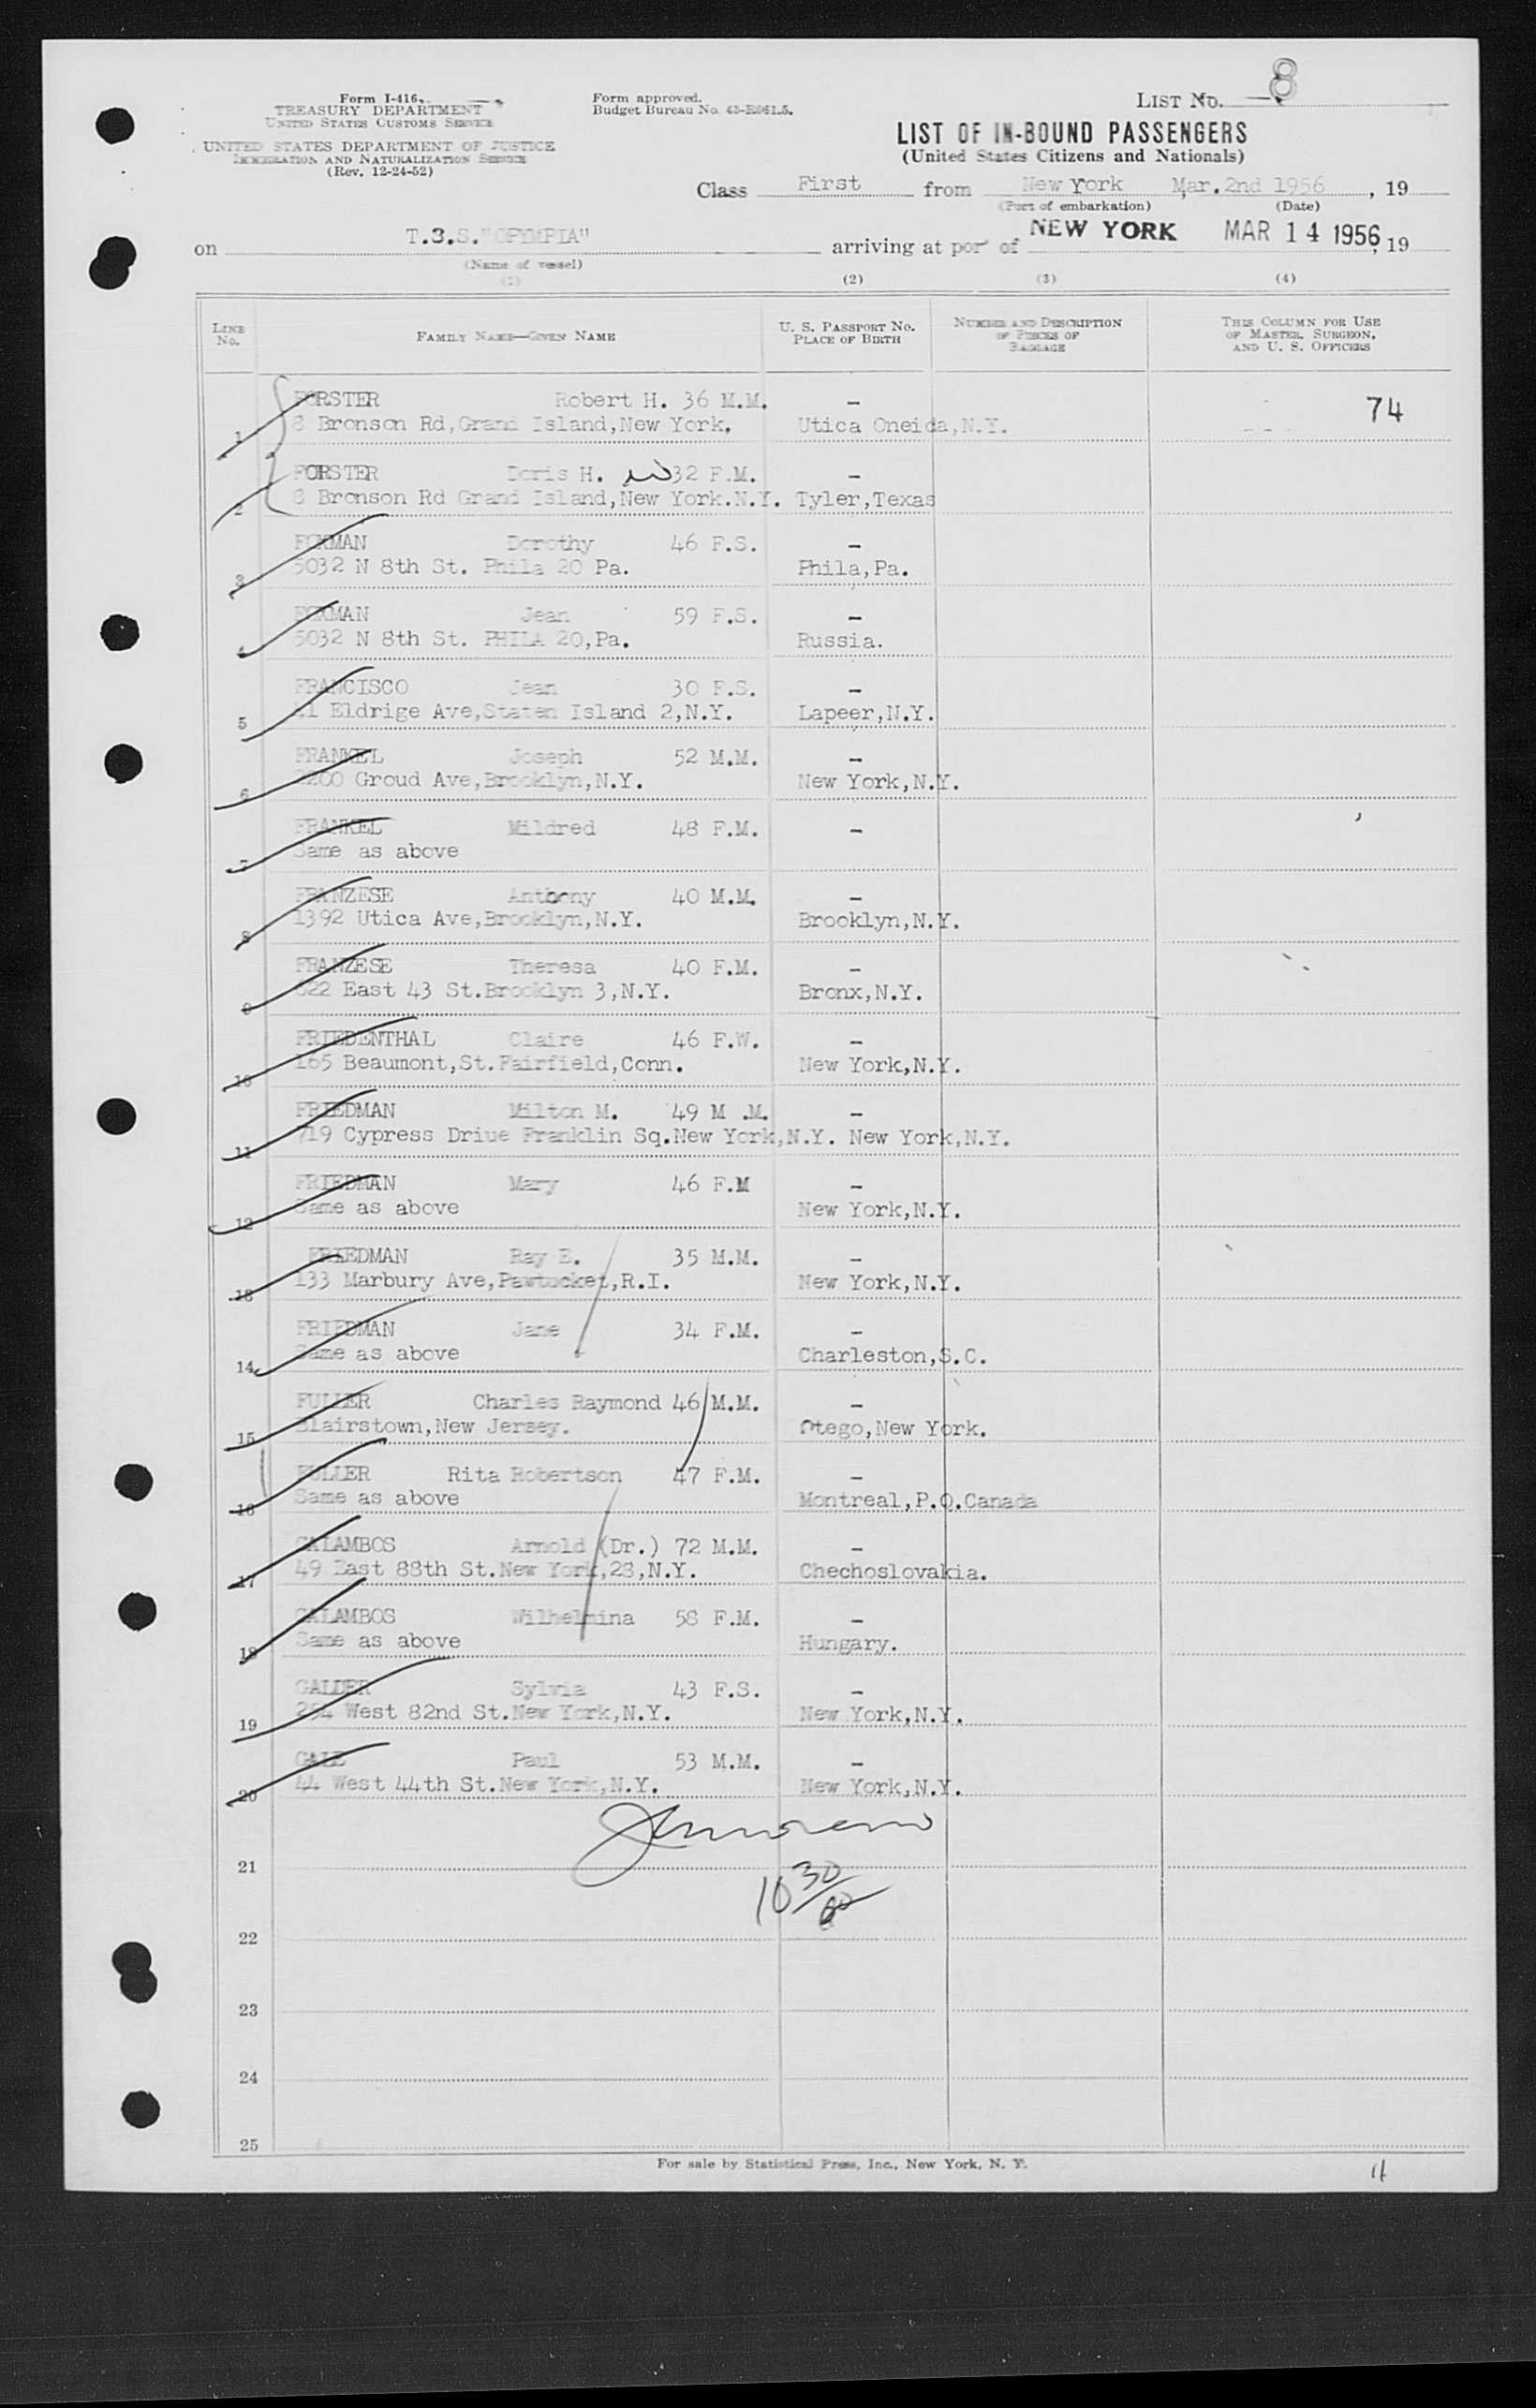 Form I-416.
TREASURY DEPARTMENT
UNITED STATES CUSTOMS SERVICE
UNITED STATES DEPARTMENT OF JUSTICE
IMMIGRATION AND NATURALIZATION SERVICE
(Rev. 12-24-52)
Form approved.
Budget Bureau No.
LIST No. 8
LIST OF IN-BOUND PASSENGERS
(United States Citizens and Nationals)
Class First from New York Mar. 2nd 1956, 19
(Port of embarkation) (Date)
on T.S.S. "OLYMPIA" arriving at port of NEW YORK MAR 14 1956, 19
(Name of vessel)
(1) (2) (3) (4)
LINE No. FAMILY NAME—GIVEN NAME U. S. PASSPORT No. PLACE OF BIRTH NUMBER AND DESCRIPTION OF PIECES OF BAGGAGE THIS COLUMN FOR USE OF MASTER, SURGEON, AND U. S. OFFICERS
FORSTER Robert H. 36 M.M. – 74
1 8 Bronson Rd,Grand Island,New York. Utica Oneida,N.Y.
FORSTER Doris H. 32 F.M. –
2 8 Bronson Rd Grand Island,New York.N.Y. Tyler,Texas
FOXMAN Dorothy 46 F.S. –
3 5032 N 8th St. Phila 20 Pa. Phila,Pa.
FOXMAN Jean 59 F.S. –
4 5032 N 8th St. PHILA 20,Pa. Russia.
FRANCISCO Jean 30 F.S. –
5 41 Eldrige Ave,Staten Island 2,N.Y. Lapeer,N.Y.
FRANKEL Joseph 52 M.M. –
6 Groud Ave,Brooklyn,N.Y. New York,N.Y.
FRANKEL Mildred 48 F.M. –
7 Same as above
FRANZESE Anthony 40 M.M. –
8 1392 Utica Ave,Brooklyn,N.Y. Brooklyn,N.Y.
FRANZESE Theresa 40 F.M. –
9 622 East 43 St.Brooklyn 3,N.Y. Bronx,N.Y.
FRIEDENTHAL Claire 46 F.W. –
10 165 Beaumont,St.Fairfield,Conn. New York,N.Y.
FRIEDMAN Milton M. 49 M .M. –
11 719 Cypress Driue Franklin Sq.New York,N.Y. New York,N.Y.
FRIEDMAN Mary 46 F.M –
12 Same as above New York,N.Y.
FRIEDMAN Ray E. 35 M.M. –
13 133 Marbury Ave,Pawtucket,R.I. New York,N.Y.
FRIEDMAN Jane 34 F.M. –
14 Same as above Charleston,S.C.
FULLER Charles Raymond 46 M.M. –
15 Blairstown,New Jersey. Otego,New York.
FULLER Rita Robertson 47 F.M. –
16 Same as above Montreal,P.Q.Canada
GALAMBOS Arnold (Dr.) 72 M.M. –
17 49 East 88th St.New York,28,N.Y. Chechoslovakia.
GALAMBOS Wilhelmina 58 F.M. –
18 Same as above Hungary.
GALDER Sylvia 43 F.S. –
19 West 82nd St.New York,N.Y. New York,N.Y.
GALE Paul 53 M.M. –
20 44 West 44th St.New York,N.Y. New York,N.Y.
21
10 30/60
22
23
24
25
For sale by Statistical Press, Inc., New York, N. Y.
11